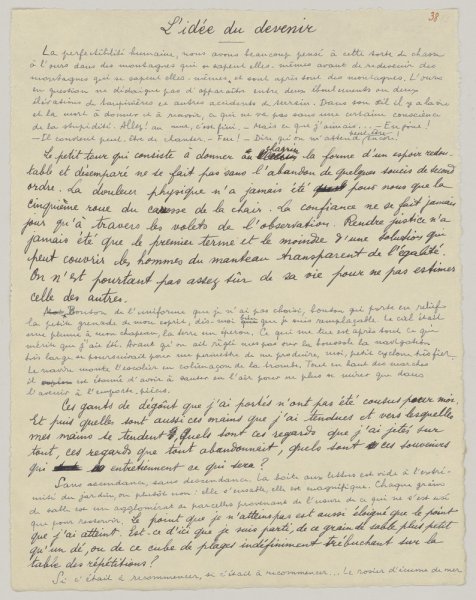 38
L'idée du devenir
La perfectibilité humaine, nous avons beaucoup pensé à cette sorte de chasse
à l'ours dans des montagnes qui se sapent elles-mêmes avant de redevenir des
montagnes qui se sapent elles-mêmes, et sont après tout des montagnes. L'ours
en question ne dédaigne pas d'apparaître entre deux éboulements ou deux
élévations de paupières et autres accidents de terrain. Dans son œil il y a la vie
et la mort à donner et à revoir, ce qui ne va pas sans une certaine conscience
de la stupidité. Allez! au mur, c'est fini. - Mais ce que j'aimais... - En joue!
- Il convient peut-être de chanter - Feu! - Dire qu'on m'attend peut-être encore!
Le petit tour qui consiste à donner au chagrin la forme d'un espoir redou-
table et désemparé ne se fait pas sans l'abandon de quelques soucis de second
ordre. La douleur physique n'a jamais été pour nous que la
cinquième roue du carosse de la chair. La confiance ne se fait jamais
jour qu'à travers les volets de l'observation. Rendre justice n'a
jamais été que le premier terme et le moindre d'une solution qui
peut couvrir les hommes du manteau transparent de l'égalité.
On n'est pourtant pas assez sûr de sa vie pour ne pas estimer
celle des autres.
Bouton de l'uniforme que je n'ai pas choisi, bouton qui portes en relief
la petite grenade de mon esprit, dis-moi bien que je suis remplaçable. Le cal était
une plume à mon chapeau, la terre un éperon. Ce qui me tue est après tout ce qui
mérite que j'aie été. Avant qu'on ait réglé mes pas sur la boussole la navigation
très large se poursuivait pour me permettre de me produire, moi, petit cyclone très fier.
Le navire monte l'escalier en colimaçon de la trombe. Tout en haut des marches
il est étonné d'avoir à sauter en l'air pour ne plus se mirer que dans
l'avenir à l'emporte-pièce.
Ces gants de dégoût que j'ai portés n'ont pas été cousus pour moi.
Et puis quelle sont aussi ces mains que j'ai tendues et vers lesquelles
mes mains se tendent, quels sont ces regards que j'ai jetés sur
tout, ces regards que tout abandonnait, quels sont ces souvenirs
qui entretiennent ce qui sera?
Sans ascendance, sans descendance. La boîte aux lettres est vide à l'extré-
mité du jardin, ou plutôt non: elle s'ensable, elle est magnifique. Chaque grain
de sable est un aggloméré de parcelles provenant de l'usure de ce qui ne s'est usé
que pour resservir. Le point que je n'atteins pas est aussi éloigné que le point
que j'ai atteint. Est-ce d'ici que je suis parti, de ce grain de sable plus petit
qu'un dé, ou de ce cube de plages indéfiniment trébuchant sur la
table des répétitions?
Si c'était à recommencer, si c'était à recommencer... Le rosier d'écume de mer